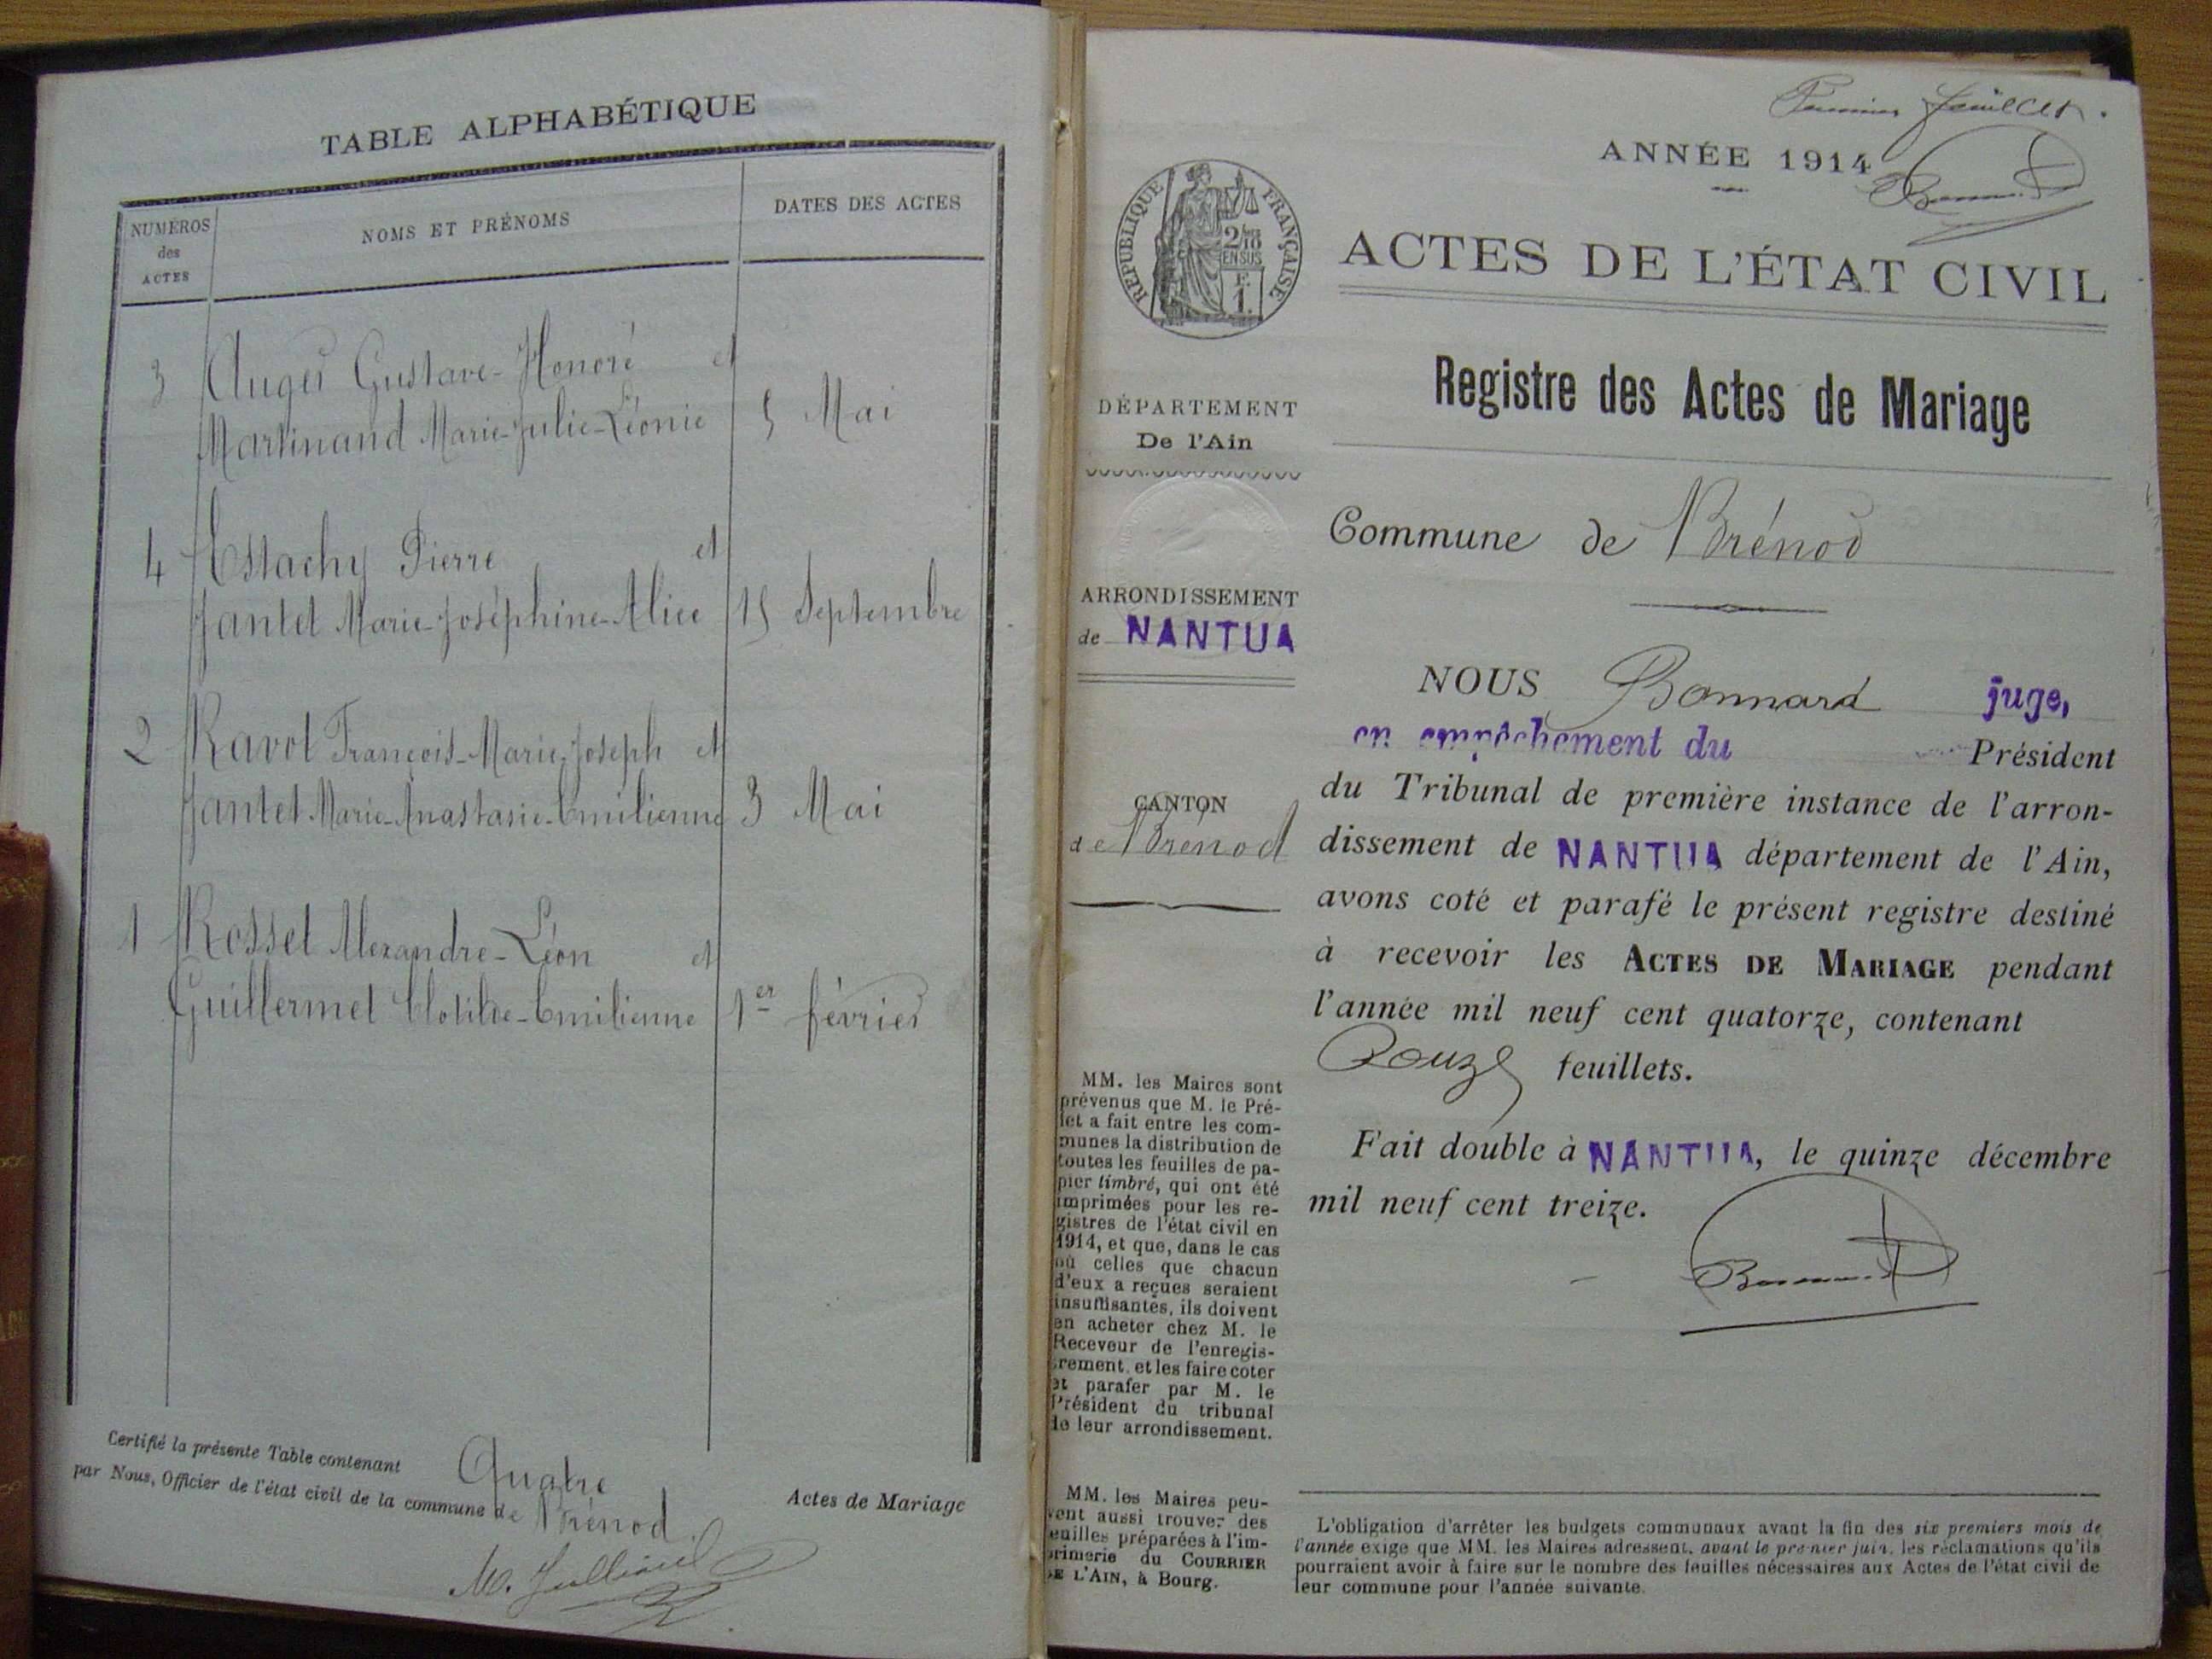 TABLE ALPHABÉTIQUE
NUMÉROS
des
ACTES
NOMS ET PRÉNOMS
DATES DES ACTES
3 Auger Gustave-Honoré et
Martinand Marie-Julie-Léonie 5 Mai
4 Estachy Pierre et
Jantet Marie-Joséphine-Alice 15 Septembre
2 Ravot François-Marie-Joseph et
Jantet Marie-Anastasie-Emilienne 3 Mai
1 Rosset Alexandre-Léon et
Guillermet Clotilde-Emilienne 1er février
Certifié la présente Table contenant Quatre Actes de Mariage
par Nous, Officier de l'état civil de la commune de Brénod.
Premier feuillet.
ANNÉE 1914
RÉPUBLIQUE FRANÇAISE
2/10
EN SUS
F.
1.
ACTES DE L'ÉTAT CIVIL
Registre des Actes de Mariage
DÉPARTEMENT
De l'Ain
Commune de Brénod
ARRONDISSEMENT
de NANTUA
CANTON
de Brénod
NOUS Bonnard juge,
en empêchement du Président
du Tribunal de première instance de l'arron-
dissement de NANTUA département de l'Ain,
avons coté et parafé le présent registre destiné
à recevoir les ACTES DE MARIAGE pendant
l'année mil neuf cent quatorze, contenant
Douze feuillets.
Fait double à NANTUA, le quinze décembre
mil neuf cent treize.
MM. les Maires sont
prévenus que M. le Pré-
fet a fait entre les com-
munes la distribution de
toutes les feuilles de pa-
pier timbré, qui ont été
imprimées pour les re-
gistres de l'état civil en
1914, et que, dans le cas
où celles que chacun
d'eux a reçues seraient
insuffisantes, ils doivent
en acheter chez M. le
Receveur de l'enregis-
trement, et les faire coter
et parafer par M. le
Président du tribunal
de leur arrondissement.
MM. les Maires peu-
vent aussi trouver des
feuilles préparées à l'im-
primerie du COURRIER
DE L'AIN, à Bourg.
L'obligation d'arrêter les budgets communaux avant la fin des six premiers mois de
l'année exige que MM. les Maires adressent, avant le premier juin, les réclamations qu'ils
pourraient avoir à faire sur le nombre des feuilles nécessaires aux Actes de l'état civil de
leur commune pour l'année suivante.